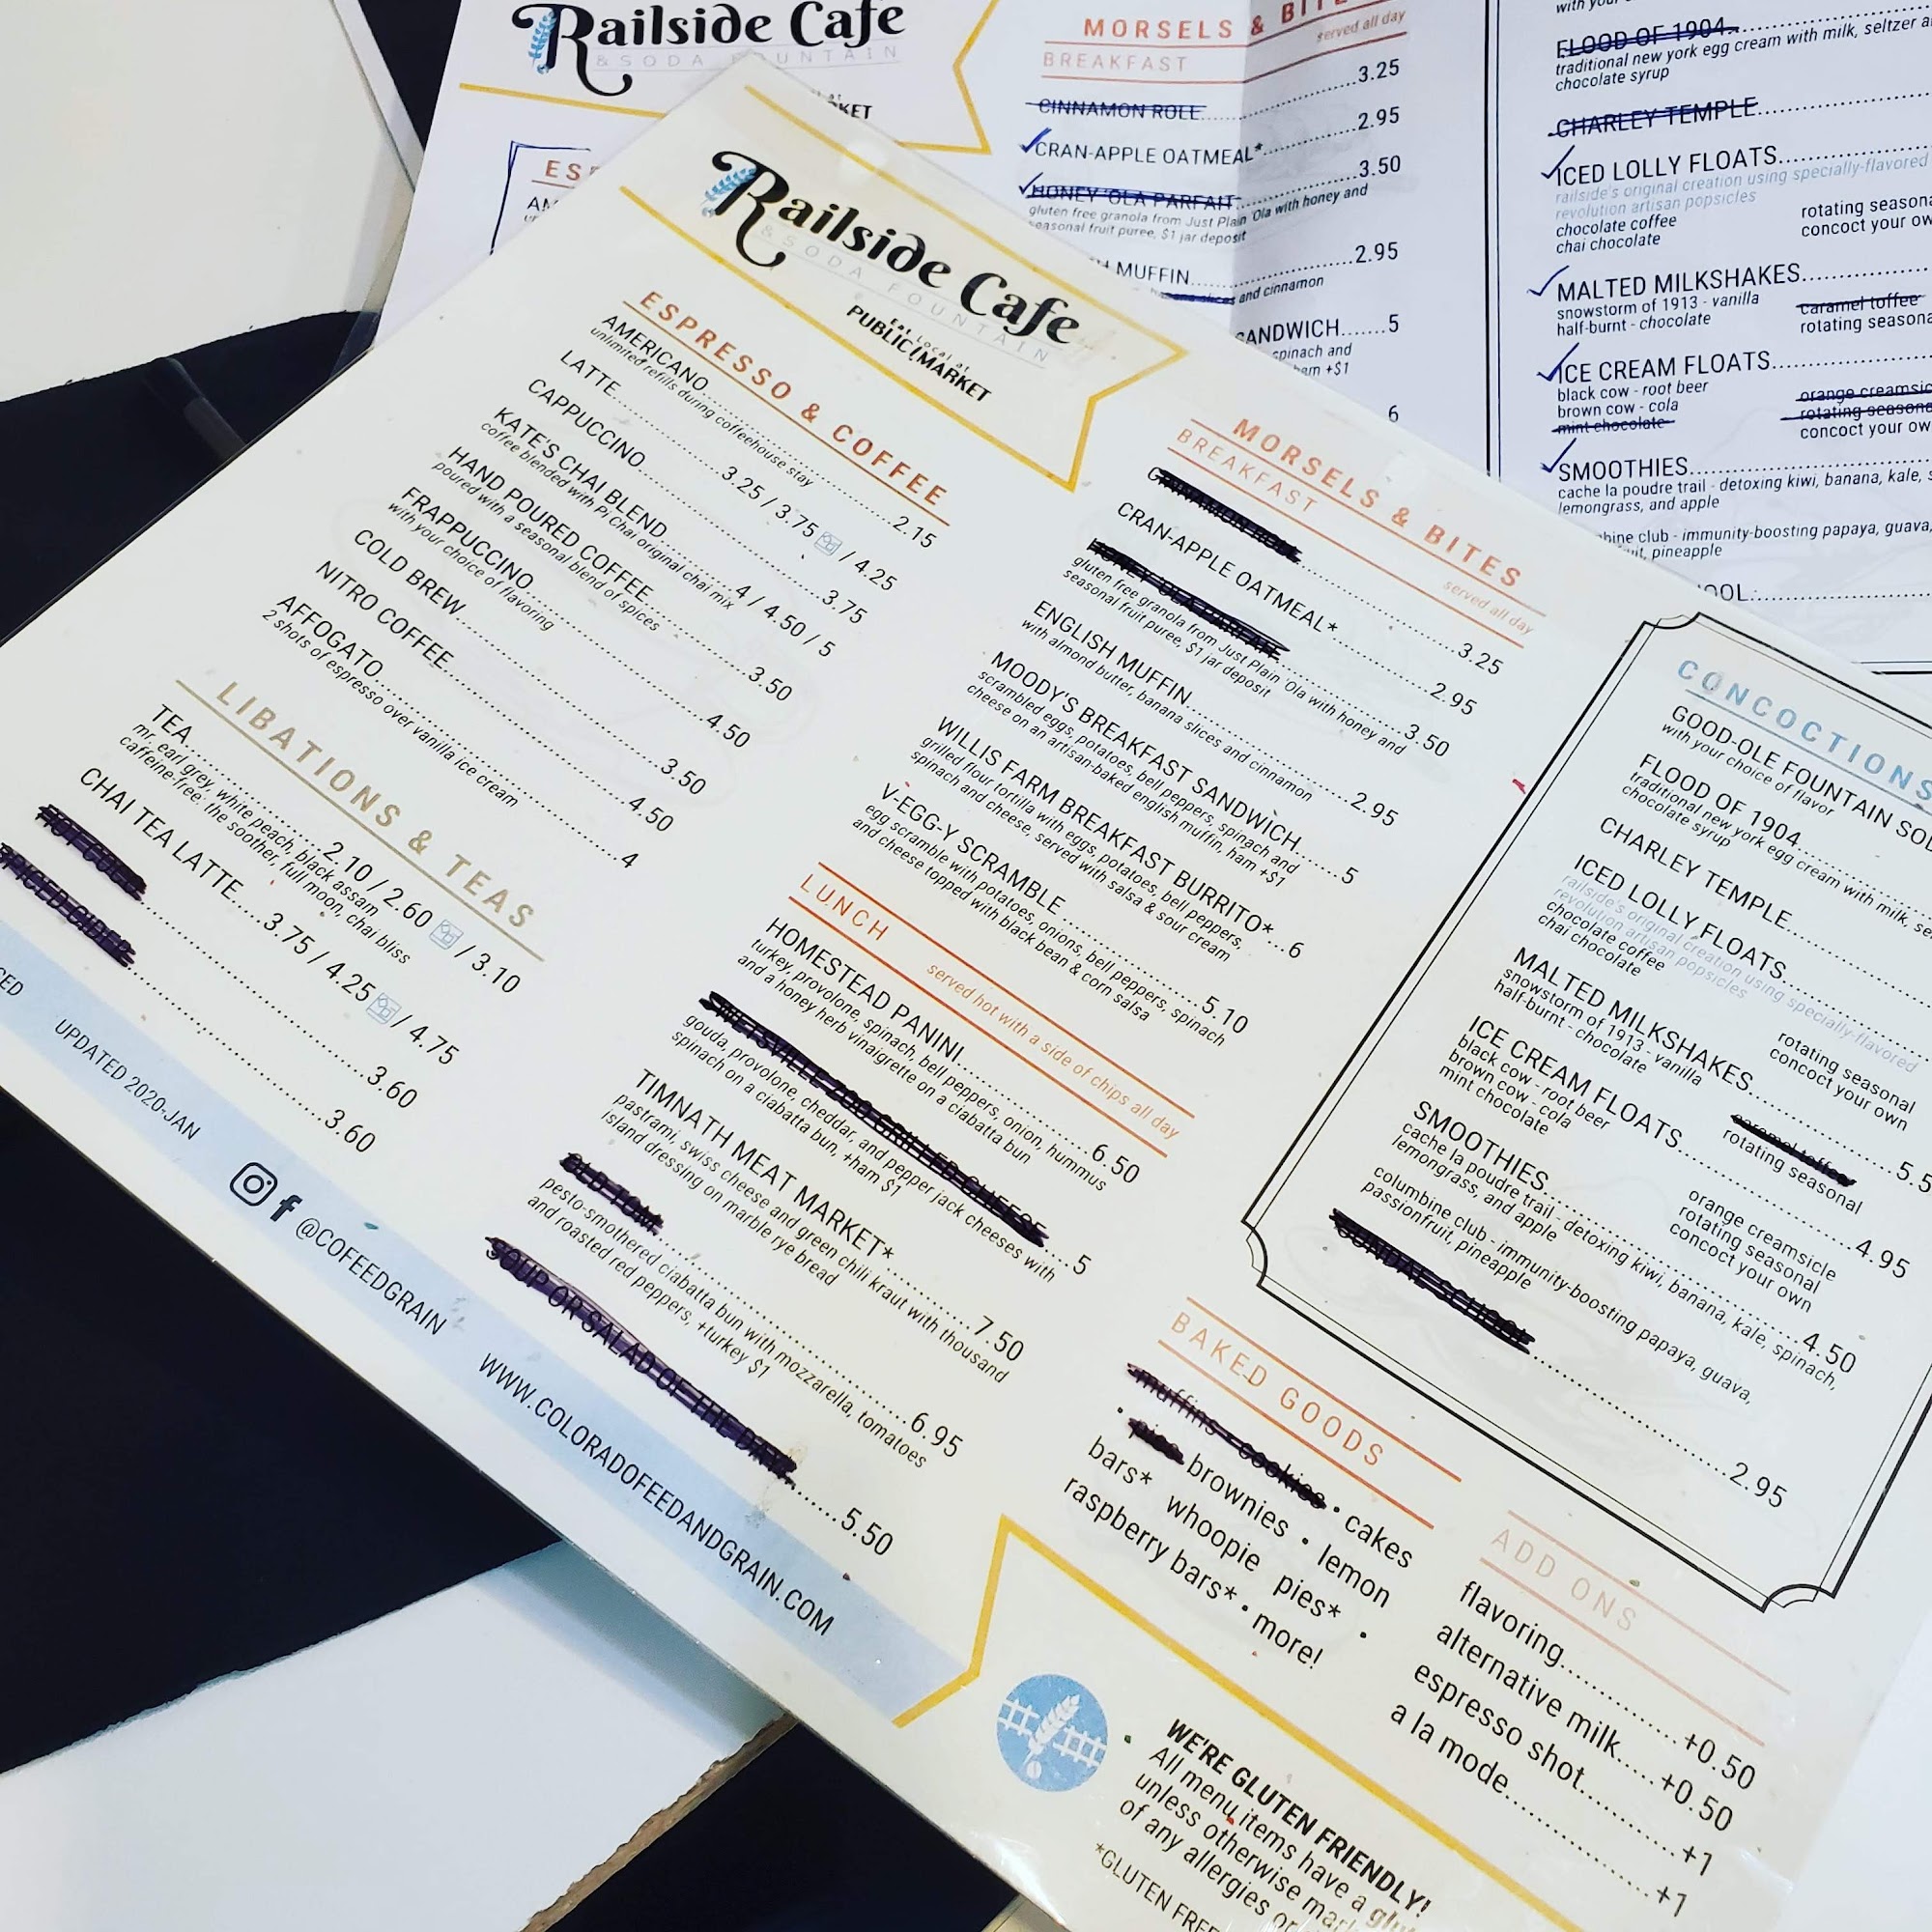 Railside Cafe
& SODA FOUNTAIN
MORSELS & BITE
served all day
BREAKFAST
3.25
CINNAMON ROLL
2.95
CRAN-APPLE OATMEAL*
3.50
HONEY 'OLA PARFAIT
gluten free granola from Just Plain 'Ola with honey and
seasonal fruit puree, $1 jar deposit
MUFFIN 2.95
and cinnamon
SANDWICH.......5
spinach and
ham +$1
6
FLOOD OF 1904
traditional new york egg cream with milk, seltzer
chocolate syrup
CHARLEY TEMPLE
ICED LOLLY FLOATS
railside's original creation using specially-flavored
revolution artisan popsicles
chocolate coffee
chai chocolate
rotating seasona
concoct your ow
MALTED MILKSHAKES
snowstorm of 1913 - vanilla
half-burnt - chocolate
caramel toffee
rotating seasona
ICE CREAM FLOATS
black cow - root beer
brown cow - cola
mint chocolate
orange creamsic
rotating seasona
concoct your ow
SMOOTHIES
cache la poudre trail - detoxing kiwi, banana, kale,
lemongrass, and apple
immunity-boosting papaya, guava,
pineapple
Railside Cafe
& SODA FOUNTAIN
Eat Local at
PUBLIC MARKET
ESPRESSO & COFFEE
AMERICANO 2.15
unlimited refills during coffeehouse stay
LATTE 3.25 / 3.75 / 4.25
CAPPUCCINO 3.75
KATE'S CHAI BLEND 4 / 4.50 / 5
coffee blended with Pi Chai original chai mix
HAND POURED COFFEE 3.50
poured with a seasonal blend of spices
FRAPPUCCINO 4.50
with your choice of flavoring
COLD BREW 3.50
NITRO COFFEE 4.50
AFFOGATO 4
2 shots of espresso over vanilla ice cream
LIBATIONS & TEAS
TEA 2.10 / 2.60 / 3.10
mr. earl grey, white peach, black assam
caffeine-free: the soother, full moon, chai bliss
CHAI TEA LATTE....3.75 / 4.25 / 4.75
3.60
3.60
UPDATED 2020-JAN
@COFEEDGRAIN
WWW.COLORADOFEEDANDGRAIN.COM
MORSELS & BITES
served all day
BREAKFAST
CINNAMON ROLL 3.25
CRAN-APPLE OATMEAL* 2.95
HONEY 'OLA PARFAIT 3.50
gluten free granola from Just Plain 'Ola with honey and
seasonal fruit puree, $1 jar deposit
ENGLISH MUFFIN 2.95
with almond butter, banana slices and cinnamon
MOODY'S BREAKFAST SANDWICH 5
scrambled eggs, potatoes, bell peppers, spinach and
cheese on an artisan-baked english muffin, ham +$1
WILLIS FARM BREAKFAST BURRITO*...6
grilled flour tortilla with eggs, potatoes, bell peppers,
spinach and cheese, served with salsa & sour cream
V-EGG-Y SCRAMBLE 5.10
egg scramble with potatoes, onions, bell peppers, spinach
and cheese topped with black bean & corn salsa
LUNCH
served hot with a side of chips all day
HOMESTEAD PANINI 6.50
turkey, provolone, spinach, bell peppers, onion, hummus
and a honey herb vinaigrette on a ciabatta bun
GRILLED CHEESE 5
gouda, provolone, cheddar, and pepper jack cheeses with
spinach on a ciabatta bun, +ham $1
TIMNATH MEAT MARKET* 7.50
pastrami, swiss cheese and green chili kraut with thousand
island dressing on marble rye bread
6.95
pesto-smothered ciabatta bun with mozzarella, tomatoes
and roasted red peppers, +turkey $1
SOUP OR SALAD OF THE DAY 5.50
CONCOCTIONS
GOOD-OLE FOUNTAIN SOD
with your choice of flavor
FLOOD OF 1904
traditional new york egg cream with milk, se
chocolate syrup
CHARLEY TEMPLE
ICED LOLLY FLOATS
railside's original creation using specially-flavored
revolution artisan popsicles
chocolate coffee
chai chocolate
rotating seasonal
concoct your own
MALTED MILKSHAKES 5.5
snowstorm of 1913 - vanilla
half-burnt - chocolate
caramel toffee
rotating seasonal
ICE CREAM FLOATS 4.95
black cow - root beer
brown cow - cola
mint chocolate
orange creamsicle
rotating seasonal
concoct your own
SMOOTHIES 4.50
cache la poudre trail - detoxing kiwi, banana, kale, spinach,
lemongrass, and apple
columbine club - immunity-boosting papaya, guava,
passionfruit, pineapple
2.95
BAKED GOODS
muffins • cookies • cakes
• pies brownies • lemon
bars* whoopie pies* •
raspberry bars* • more!
ADD ONS
flavoring +0.50
alternative milk.....+0.50
espresso shot +1
a la mode +1
WE'RE GLUTEN FRIENDLY!
All menu items have a glut
unless otherwise mark
of any allergies or
*GLUTEN FREE